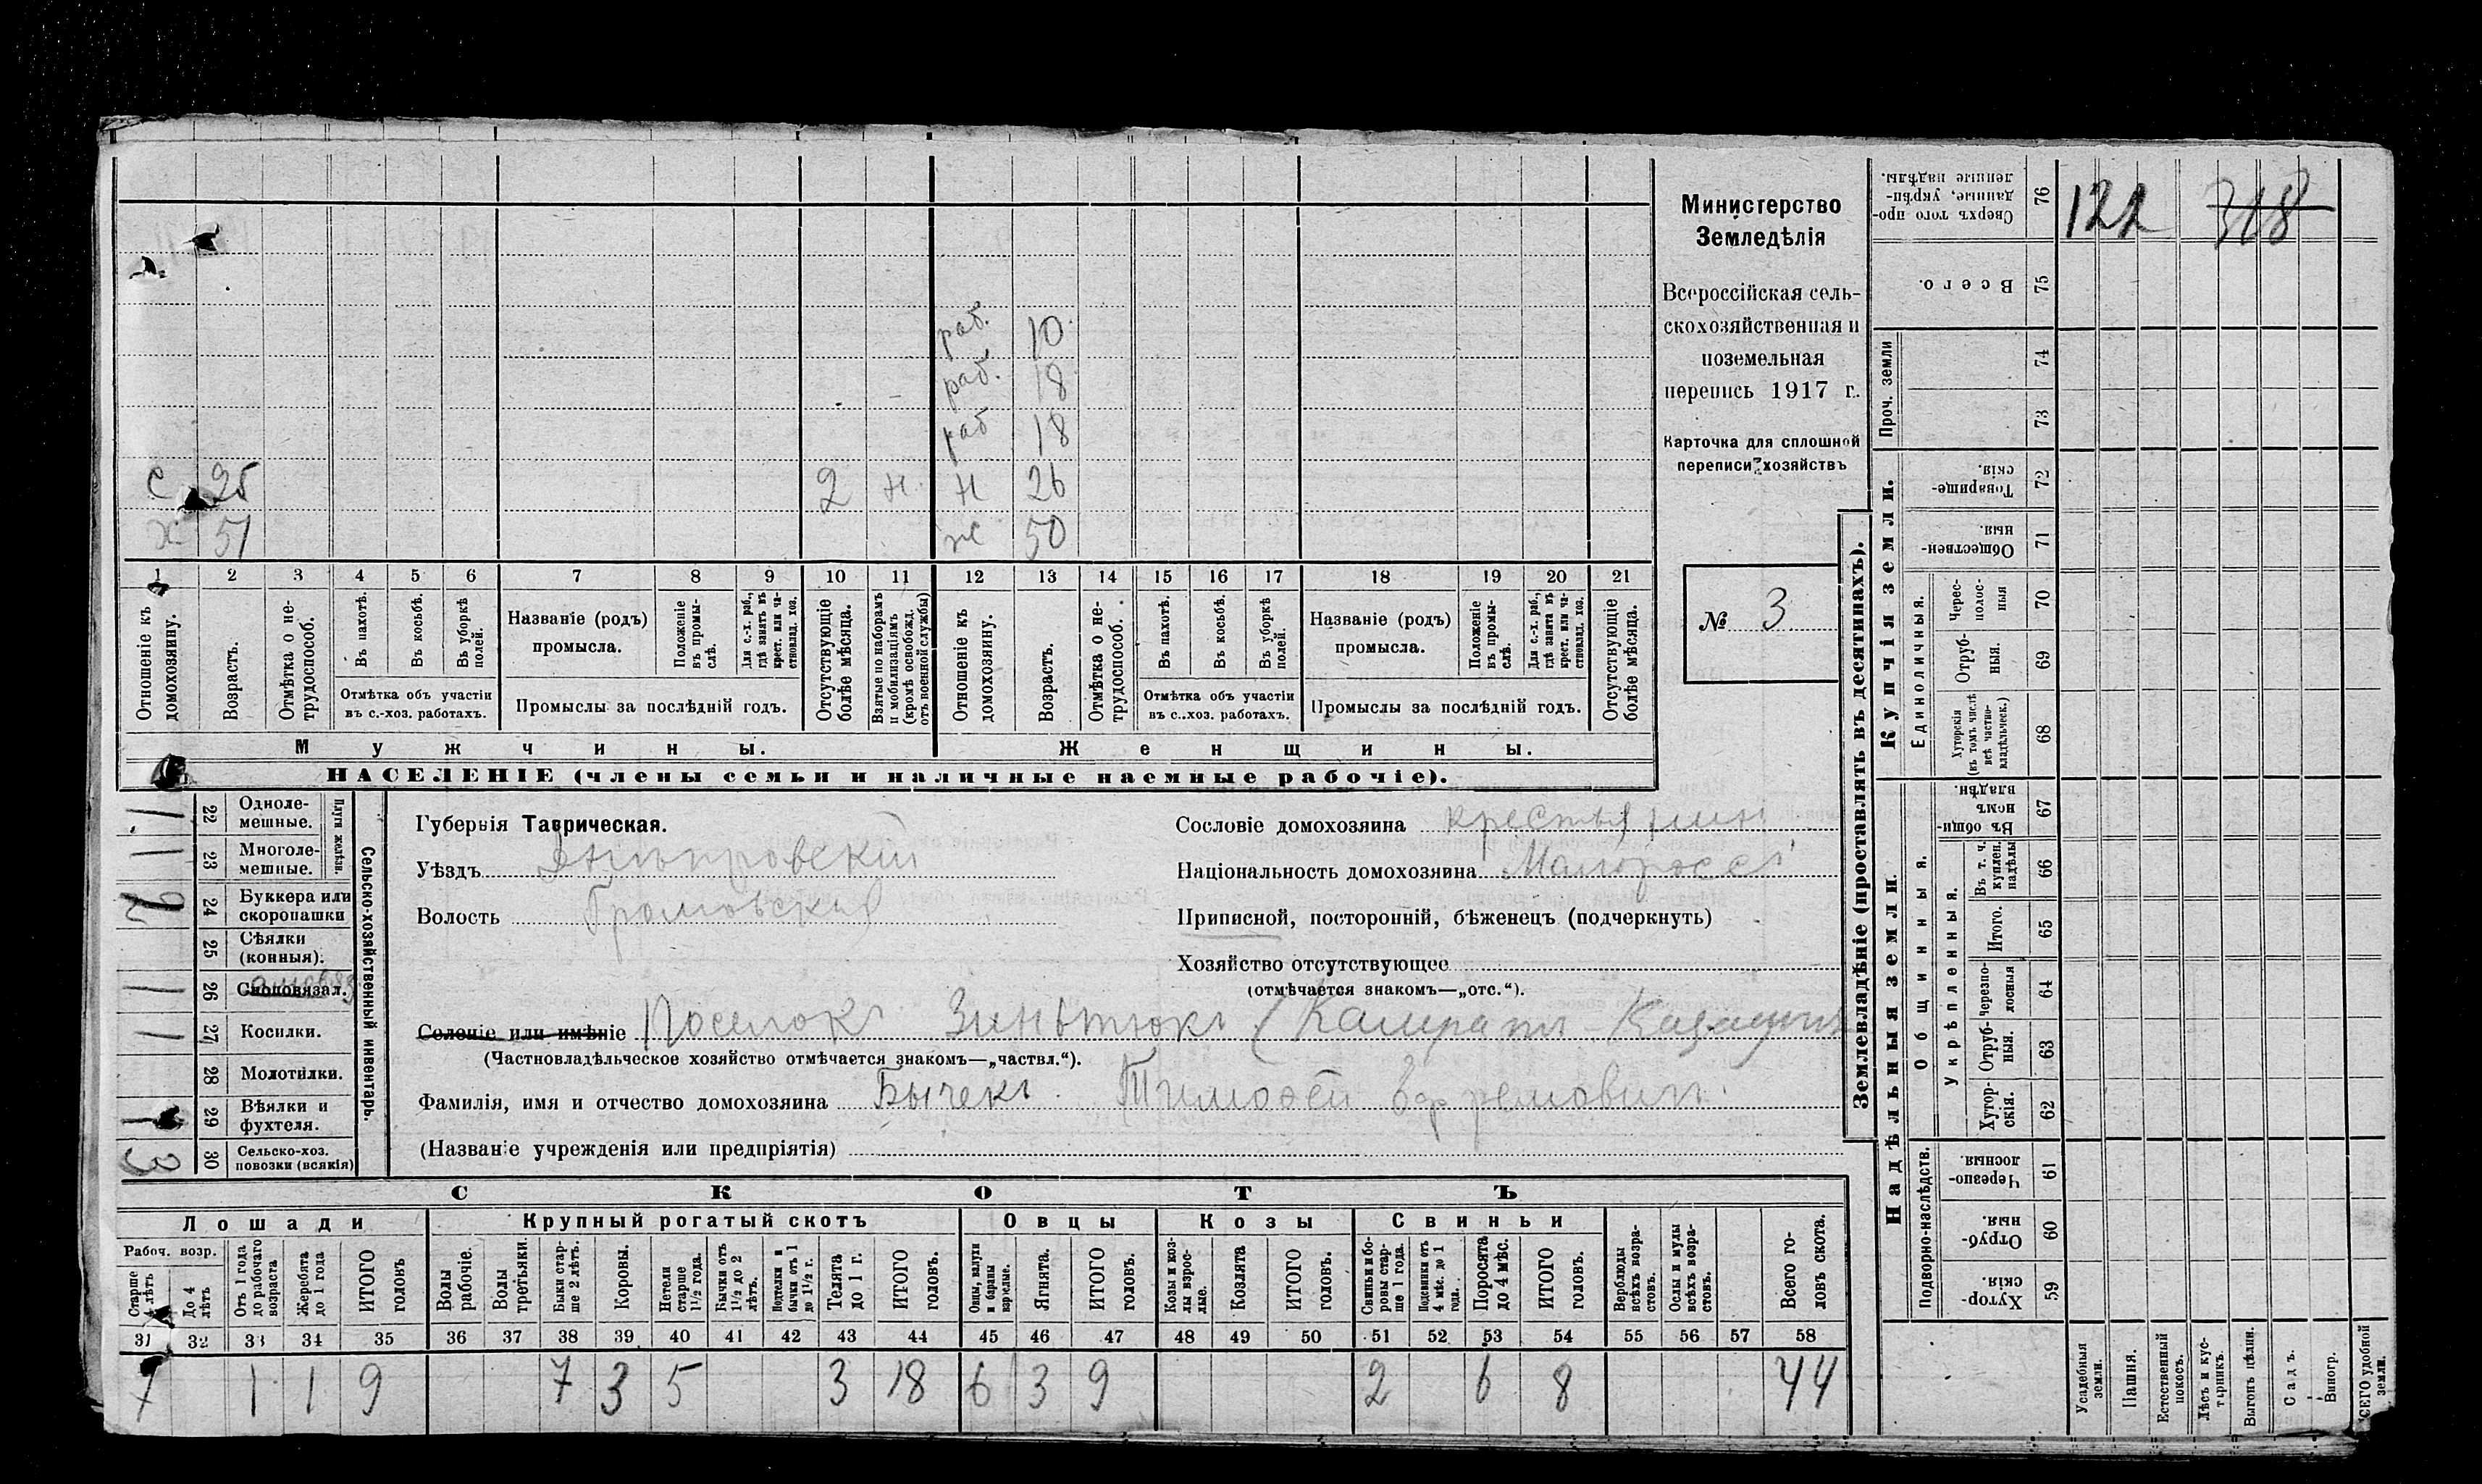 Министерство
Земледѣлія
Всероссійская сель-
скохозяйственная и
поземельная
перепись 1917 г.
Карточка для сплошной
переписи хозяйствъ
№ 3
раб. 10
раб. 18
раб 18
с 25 2 н. н 26
х 51 ж 50
1 2 3 4 5 6 7 8 9 10 11 12 13 14 15 16 17 18 19 20 21
Отношеніе къ домохозяину.
Возрастъ.
Отмѣтка о не-трудоспособ.
Въ пахотѣ.
Въ косьбѣ.
Въ уборкѣ полей.
Отмѣтка объ участіи
въ с.-хоз. работахъ.
Названіе (родъ)
промысла.
Положеніе въ промы-слѣ.
Для с.-х. раб., гдѣ занятъ въ крест. или ча-стновлад. хоз.
Промыслы за послѣдній годъ.
Отсутствующіе болѣе мѣсяца.
Взятые по наборамъ и мобилизаціямъ (кромѣ освобожд. отъ военной службы)
Отношеніе къ домохозяину.
Возрастъ.
Отмѣтка о не-трудоспособ.
Въ пахотѣ.
Въ косьбѣ.
Въ уборкѣ полей.
Отмѣтка объ участіи
въ с.-хоз. работахъ.
Названіе (родъ)
промысла.
Положеніе въ промы-слѣ.
Для с.-х. раб., гдѣ занята въ крест. или ча-стновлад. хоз.
Промыслы за послѣдній годъ.
Отсутствующіе болѣе мѣсяца.
Мужчины. Женщины.
НАСЕЛЕНІЕ (члены семьи и наличные наемные рабочіе).
Сельско-хозяйственный инвентарь.
Плуги желѣзн.
22 Одноле-мешные. 1
23 Многоле-мешные. 1
24 Буккера или скоропашки 2
25 Сѣялки (конныя).
26 Сноповязал. 1
27 Косилки. 1
28 Молотилки.
29 Вѣялки и фухтеля. 1
30 Сельско-хоз. повозки (всякія) 3
Губернія Таврическая.
Уѣздъ Днѣпровскій
Волость Громовская
Сословіе домохозяина крестьянин
Національность домохозяина Малоросс
Приписной, посторонній, бѣженецъ (подчеркнуть)
Хозяйство отсутствующее
(отмѣчается знакомъ—„отс.“).
Селеніе или имѣніе Поселокъ
(Частновладѣльческое хозяйство отмѣчается знакомъ—„частвл.“).
Фамилія, имя и отчество домохозяина Бычекъ Тимофей Ефремович
(Названіе учрежденія или предпріятія)
СКОТЪ
Лошади Крупный рогатый скотъ Овцы Козы Свиньи
Рабоч. возр.
Старше 4 лѣтъ
До 4 лѣтъ
Отъ 1 года до рабочаго возраста
Жеребята до 1 года
ИТОГО головъ
Волы рабочіе.
Волы третьяки.
Быки стар-ше 2 лѣтъ.
Коровы.
Нетели старше 1½ года.
Бычки отъ 1½ до 2 лѣтъ.
Подтелки и бычки отъ 1 до 1½ г.
Телята до 1 г.
ИТОГО головъ.
Овцы, валухи и бараны взрослые.
Ягнята.
ИТОГО головъ.
Козы и коз-лы взрос-лые.
Козлята
ИТОГО головъ.
Свиньи и бо-ровы стар-ше 1 года.
Подсвинки отъ 4 мѣс. до 1 года.
Поросята до 4 мѣс.
ИТОГО головъ.
Верблюды всѣхъ возра-стовъ.
Ослы и мулы всѣхъ возра-стовъ.
Всего го-ловъ скота.
31 32 33 34 35 36 37 38 39 40 41 42 43 44 45 46 47 48 49 50 51 52 53 54 55 56 57 58
7 1 1 9 7 3 5 3 18 6 3 9 2 6 8 44
Землевладѣніе (проставлять въ десятинахъ).
Купчія земли.
Надѣльныя земли.
Сверхъ того про-данные, укрѣп-ленные надѣлы. 76 122 318
Всего. 75
Проч. земли 74
73
Товарище-скія. 72
Обществен-ныя. 71
Единоличныя.
Черес-полос-ныя 70
Отруб-ныя. 69
Хуторскія (въ томъ числѣ всѣ частно-владѣльческ.) 68
Общинныя.
Въ общи-номъ владѣн. 67
Укрѣпленныя.
Въ т. ч. куплен. надѣлы 66
Итого. 65
Черезпо-лосныя 64
Отруб-ныя. 63
Хутор-скія. 62
Подворно-наслѣдств.
Черезпо-лосныя. 61
Отруб-ныя. 60
Хутор-скія. 59
Усадебныя земли.
Пашня.
Естественный покосъ.
Лѣсъ и кус-тарникъ.
Выгонъ цѣлин.
Садъ.
Виногр.
ВСЕГО удобной земли.